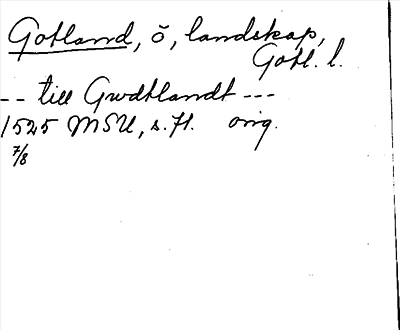 Gotland, ö, landskap,
Gotl. l.
-- till Gwdtlandt ---
1525 MSU, s. 71. orig.
7/8